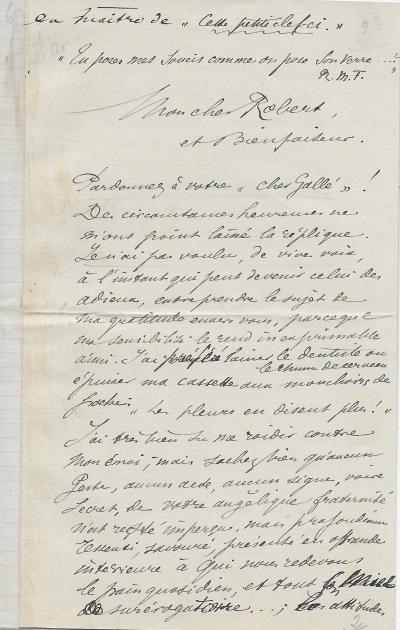 au maître de « Cette petite clef-ci. »
« Tu poses mes soucis comme on pose son verre ... »
R. M. F.
Mon cher Robert,
et Bienfaiteur.
Pardonnez à votre « cher Gallé » !
Des circonstances heureuses ne
m'ont point laissé la réplique.
Je n'ai pas voulu, de vive voix,
à l'instant qui peut devenir celui des
adieux, entreprendre le sujet de
ma gratitude envers vous, parce que
ma sensibilité le rend inexprimable
ainsi. J'ai préféré laisser le dentiste ou
le rhume de cerveau
épuiser ma cassette aux mouchoirs de
poche. « Les pleurs en disent plus ! »
J'ai très bien su me roidir contre
mon émoi, mais sachez bien qu'aucun
geste, aucun acte, aucun signe, voire
secret, de votre angélique fraternité
n'est resté imperçu, mais profondément
ressenti, savouré, présenté en offrande
intérieure à Qui nous redevons
le pain quotidien, et tout le Miel
surérogatoire ... ; les attitudes